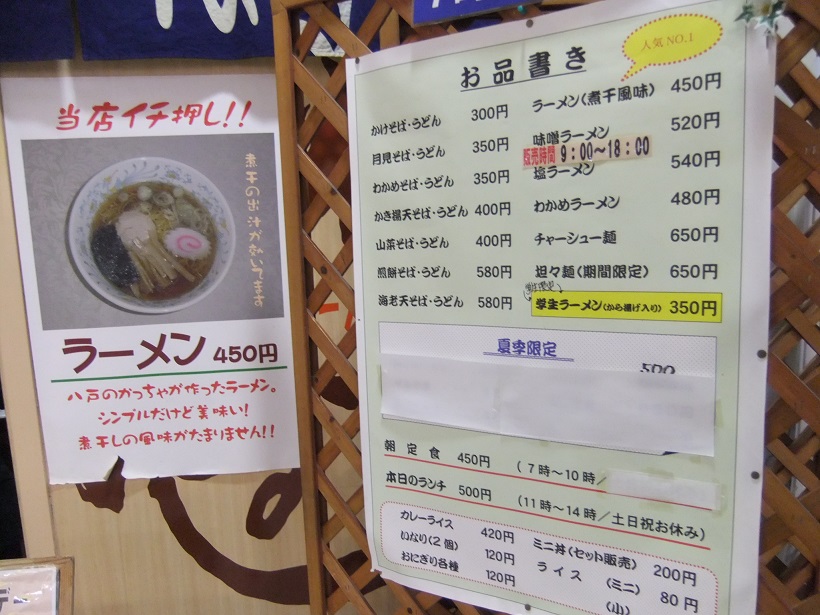 当店イチ押し!!
煮干の出汁が効いてます
ラーメン 450円
八戸のかっちゃが作ったラーメン。
シンプルだけど美味い!
煮干しの風味がたまりません!!
お品書き
人気 NO.1
かけそば・うどん 300円
月見そば・うどん 350円
わかめそば・うどん 350円
かき揚天そば・うどん 400円
山菜そば・うどん 400円
煎餅そば・うどん 580円
海老天そば・うどん 580円
ラーメン(煮干風味) 450円
味噌ラーメン 520円
販売時間 9:00～18:00
塩ラーメン 540円
わかめラーメン 480円
チャーシュー麺 650円
坦々麺(期間限定) 650円
学生ラーメン(から揚げ入り) 350円
夏季限定
500
朝定食 450円 (7時～10時/
本日のランチ 500円 (11時～14時/土日祝お休み)
カレーライス 420円
いなり(2個) 120円
おにぎり各種 120円
ミニ丼(セット販売) 200円
ライス (ミニ) 80円
(小)